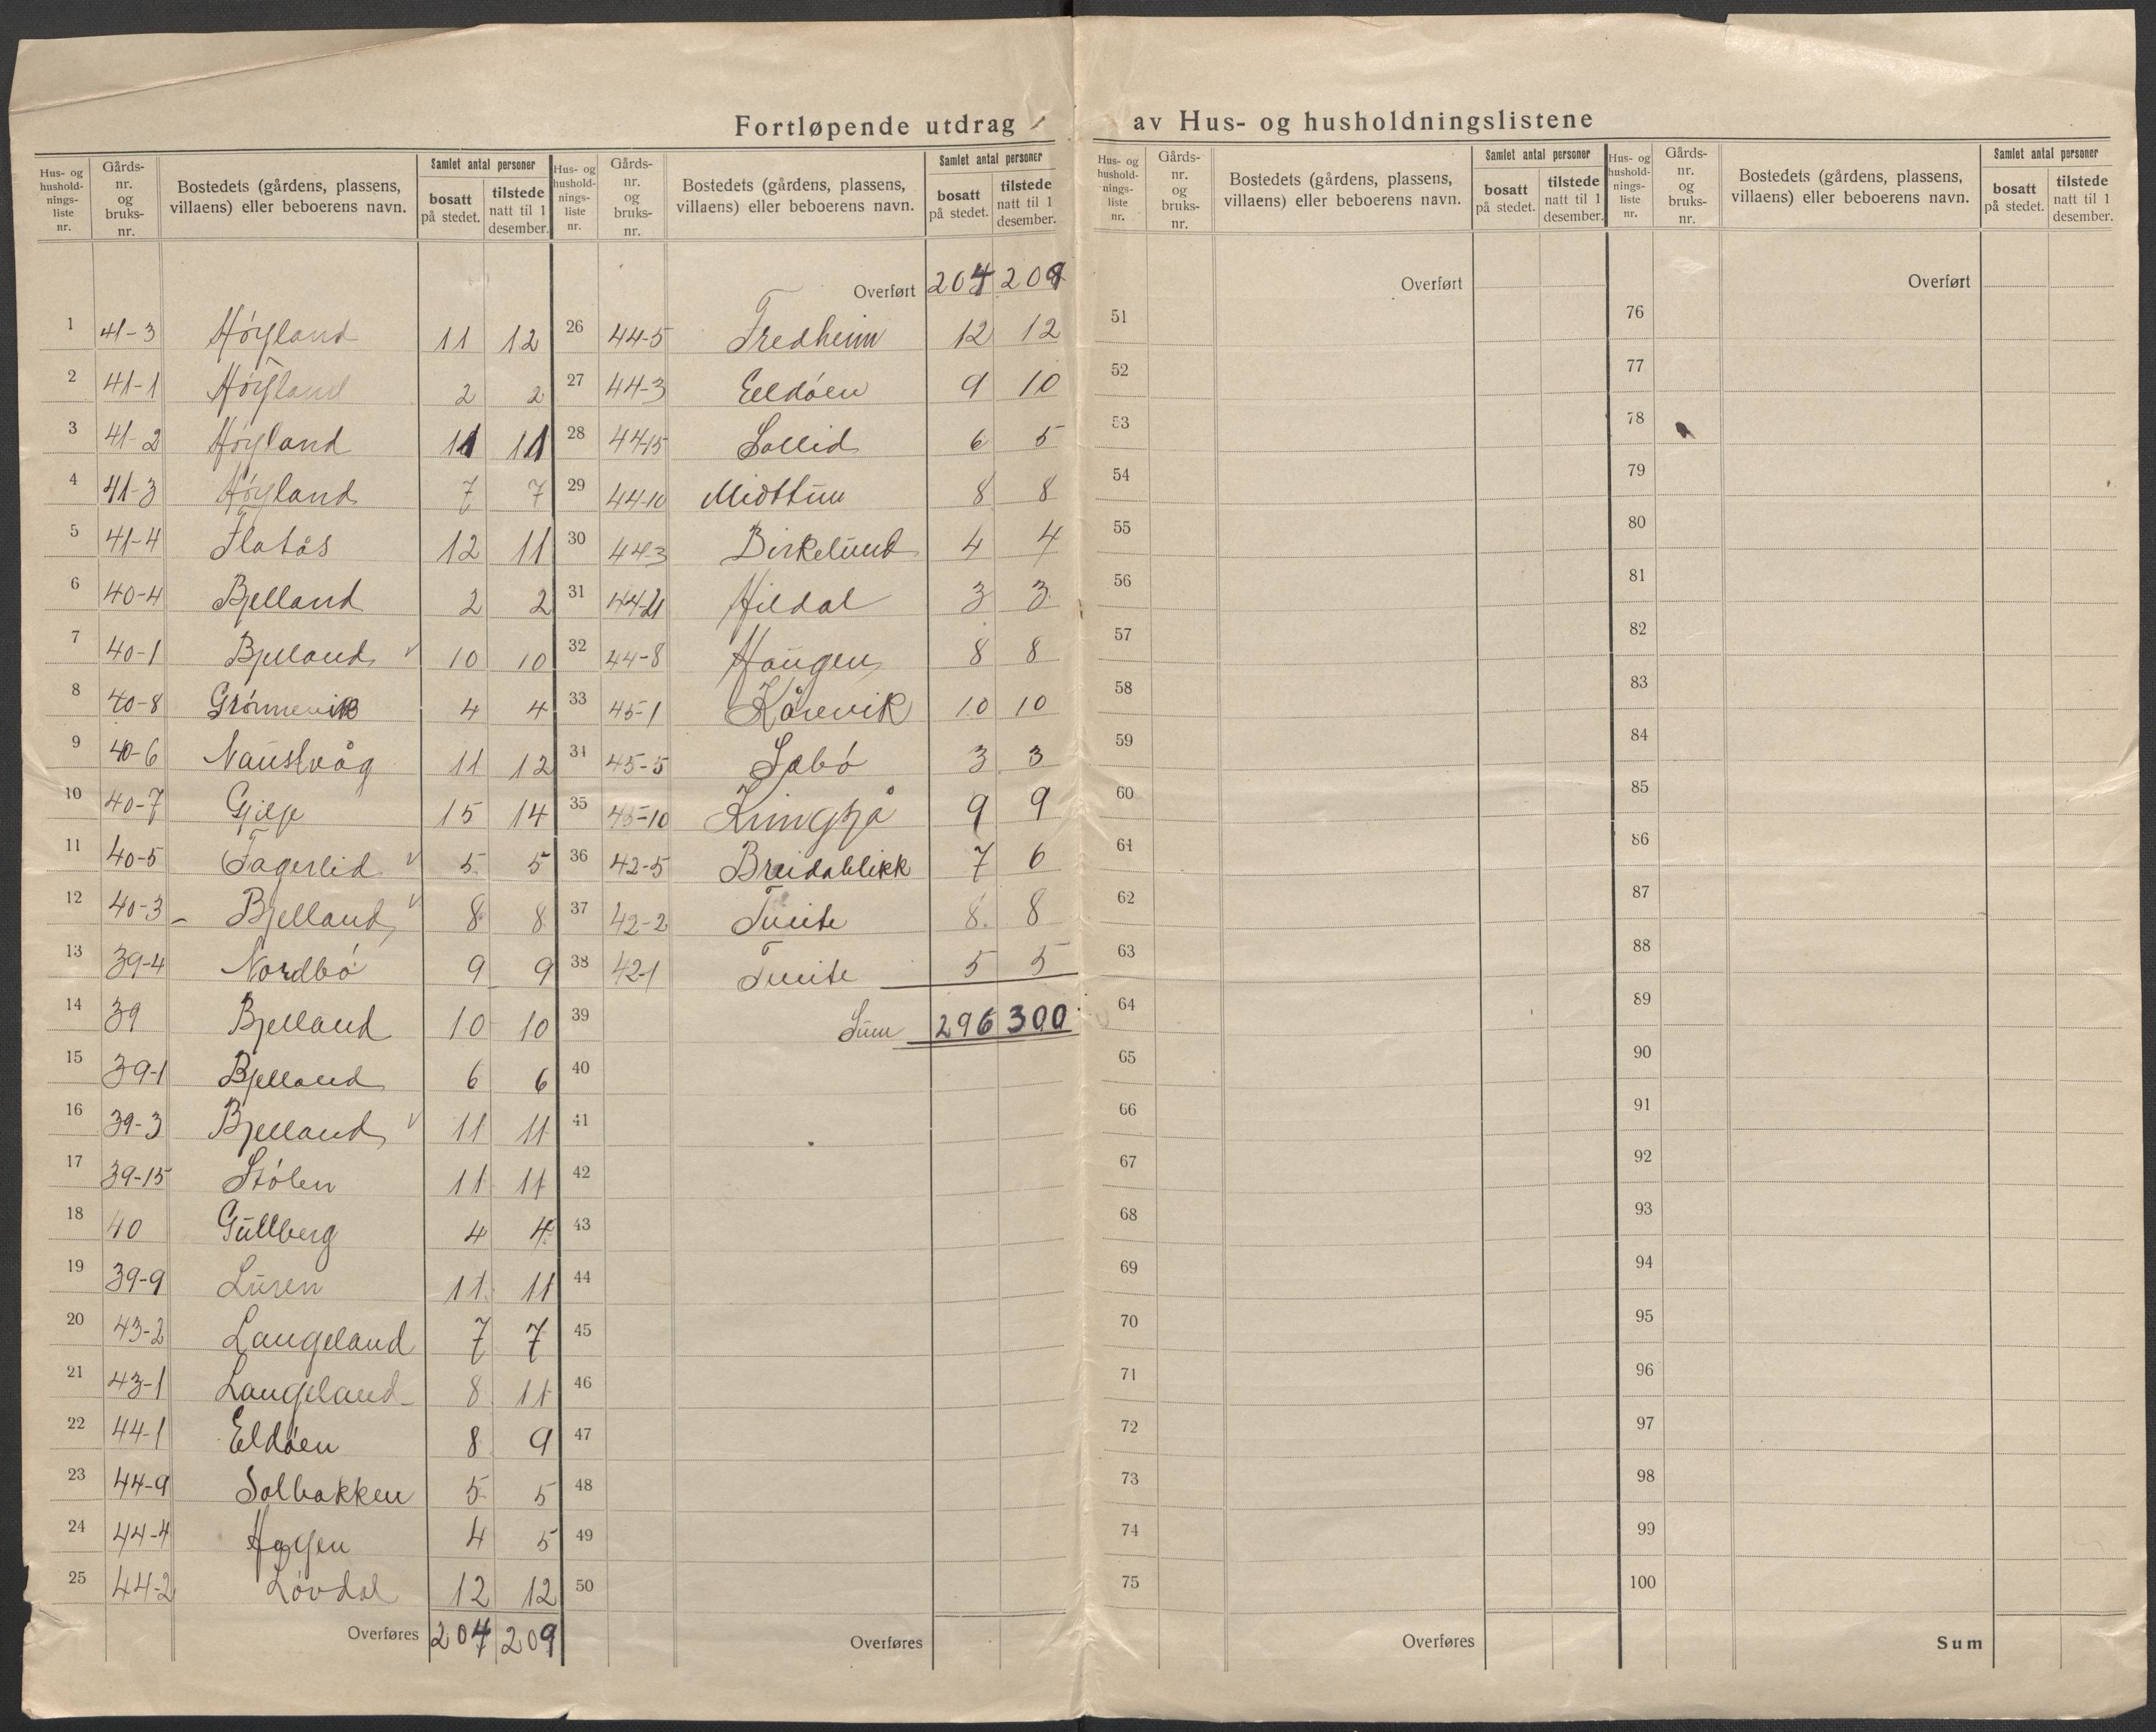 Fortløpende utdrag av Hus- og husholdningslistene
Hus- og husholdningsliste nr.
Gårds-nr. og bruks-nr.
Bostedets (gårdens, plassens, villaens) eller beboerens navn.
Samlet antal personer
bosatt på stedet.
tilstede natt til 1 desember.
1 41-3 Høyland 11 12
2 41-1 Høyland 2 2
3 41-2 Høyland 11 11
4 41-3 Høyland 7 7
5 41-4 Flatås 12 11
6 40-4 Bjelland 2 2
7 40-1 Bjelland v 10 10
8 40-8 Grønnevik 4 4
9 40-6 Naustvåg 11 12
10 40-7 Gilje 15 14
11 40-5 Fagerlid v 5 5
12 40-3 - Bjelland v 8 8
13 39-4 Nordbø 9 9
14 39 Bjelland 10 10
15 39-1 Bjelland 6 6
16 39-3 Bjelland v 11 11
17 39-15 Stølen 11 11
18 40 Gullberg 4 4
19 39-9 Luren 11 11
20 43-2 Langeland 7 7
21 43-1 Langeland 8 11
22 44-1 Eldøen 8 9
23 44-9 Solbakken 5 5
24 44-4 Hagen 4 5
25 44-2 Løvdal 12 12
Overføres 204 209
Hus- og husholdningsliste nr.
Gårds-nr. og bruks-nr.
Bostedets (gårdens, plassens, villaens) eller beboerens navn.
Samlet antal personer
bosatt på stedet.
tilstede natt til 1 desember.
Overført 204 209
26 44-5 Fredheim 12 12
27 44-3 Eeldøen 9 10
28 44-15 Sollid 6 5
29 44-10 Midttun 8 8
30 44-3 Birkelund 4 4
31 44-21 Hildal 3 3
32 44-8 Haugen 8 8
33 45-1 Kårevik 10 10
34 45-5 Sæbø 3 3
35 45-10 9 9
36 42-5 Breidablikk 7 6
37 42-2 Tveite 8 8
38 42-1 Tveite 5 5
39 Sum 296 300
40
41
42
43
44
45
46
47
48
49
50
Overføres
Hus- og husholdningsliste nr.
Gårds-nr. og bruks-nr.
Bostedets (gårdens, plassens, villaens) eller beboerens navn.
Samlet antal personer
bosatt på stedet.
tilstede natt til 1 desember.
Overført
51
52
53
54
55
56
57
58
59
60
61
62
63
64
65
66
67
68
69
70
71
72
73
74
75
Overføres
Hus- og husholdningsliste nr.
Gårds-nr. og bruks-nr.
Bostedets (gårdens, plassens, villaens) eller beboerens navn.
Samlet antal personer
bosatt på stedet.
tilstede natt til 1 desember.
Overført
76
77
78
79
80
81
82
83
84
85
86
87
88
89
90
91
92
93
94
95
96
97
98
99
100
Sum